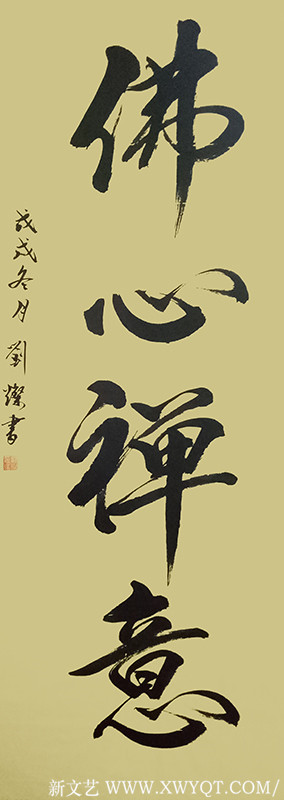 佛心禅意
戊戌冬月劉燦書
新文艺 WWW.XWYQT.COM/